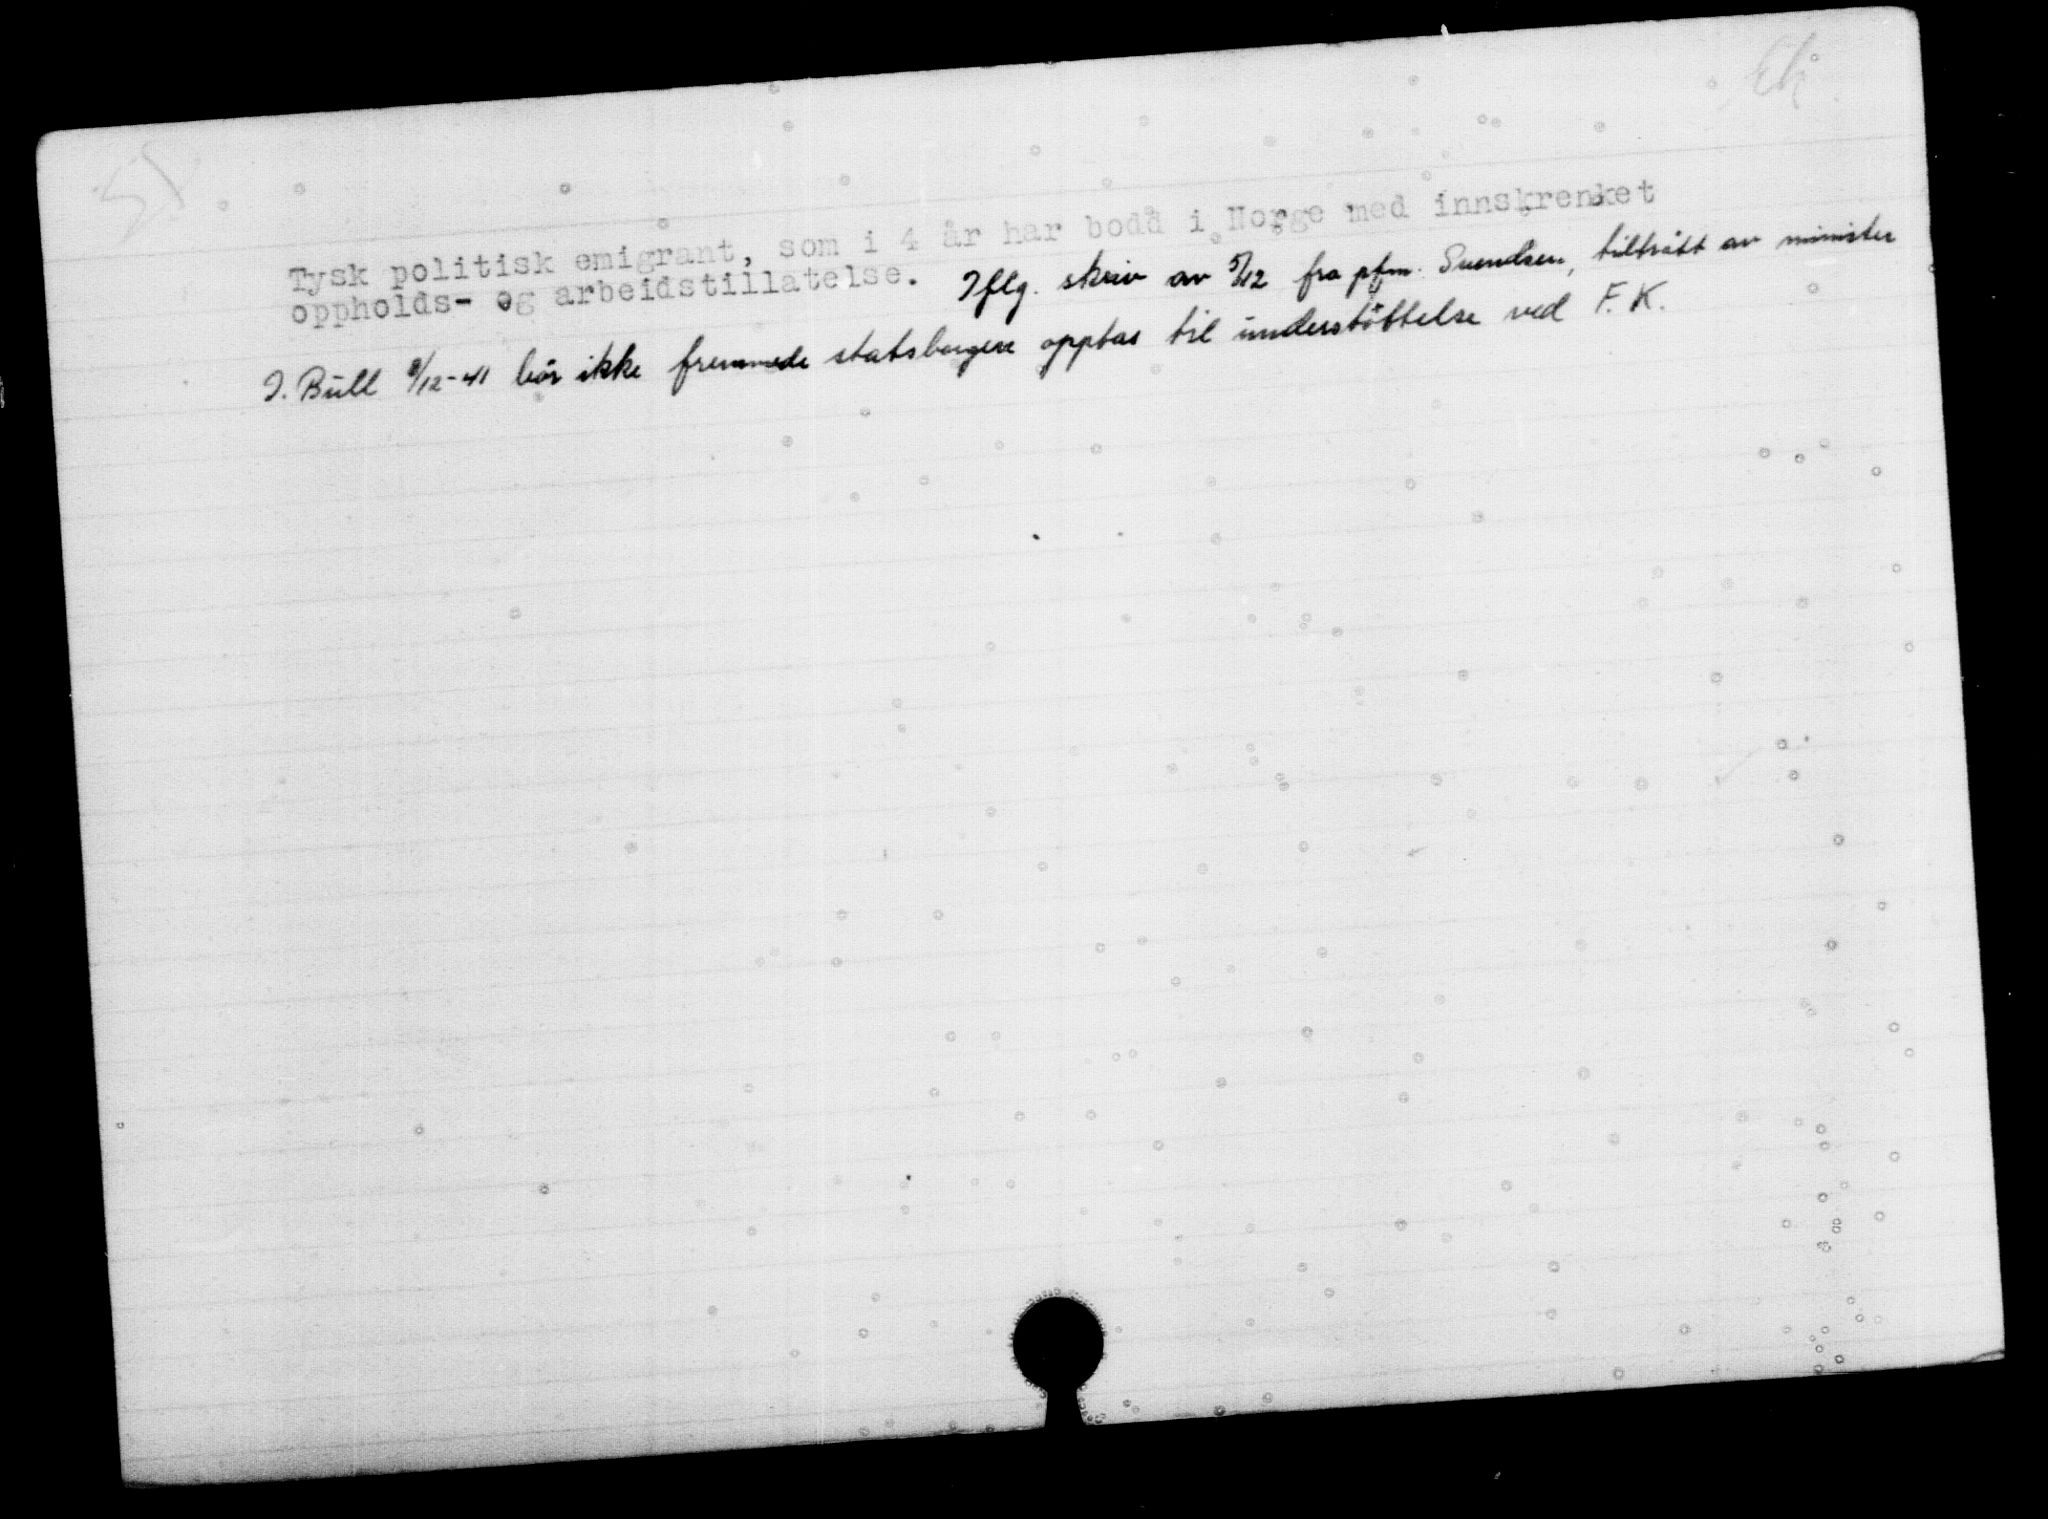 Tysk politisk emigrant, som i 4 år har bodd i Norge med innskrenket
oppholds- og arbeidstillatelse. Iflg. skriv av 5/12 fra pfm. Svendsen, tiltrått av minister
I. Bull 8/12-41 bör ikke fremmede statsborgere opptas til understöttelse ved F. K.